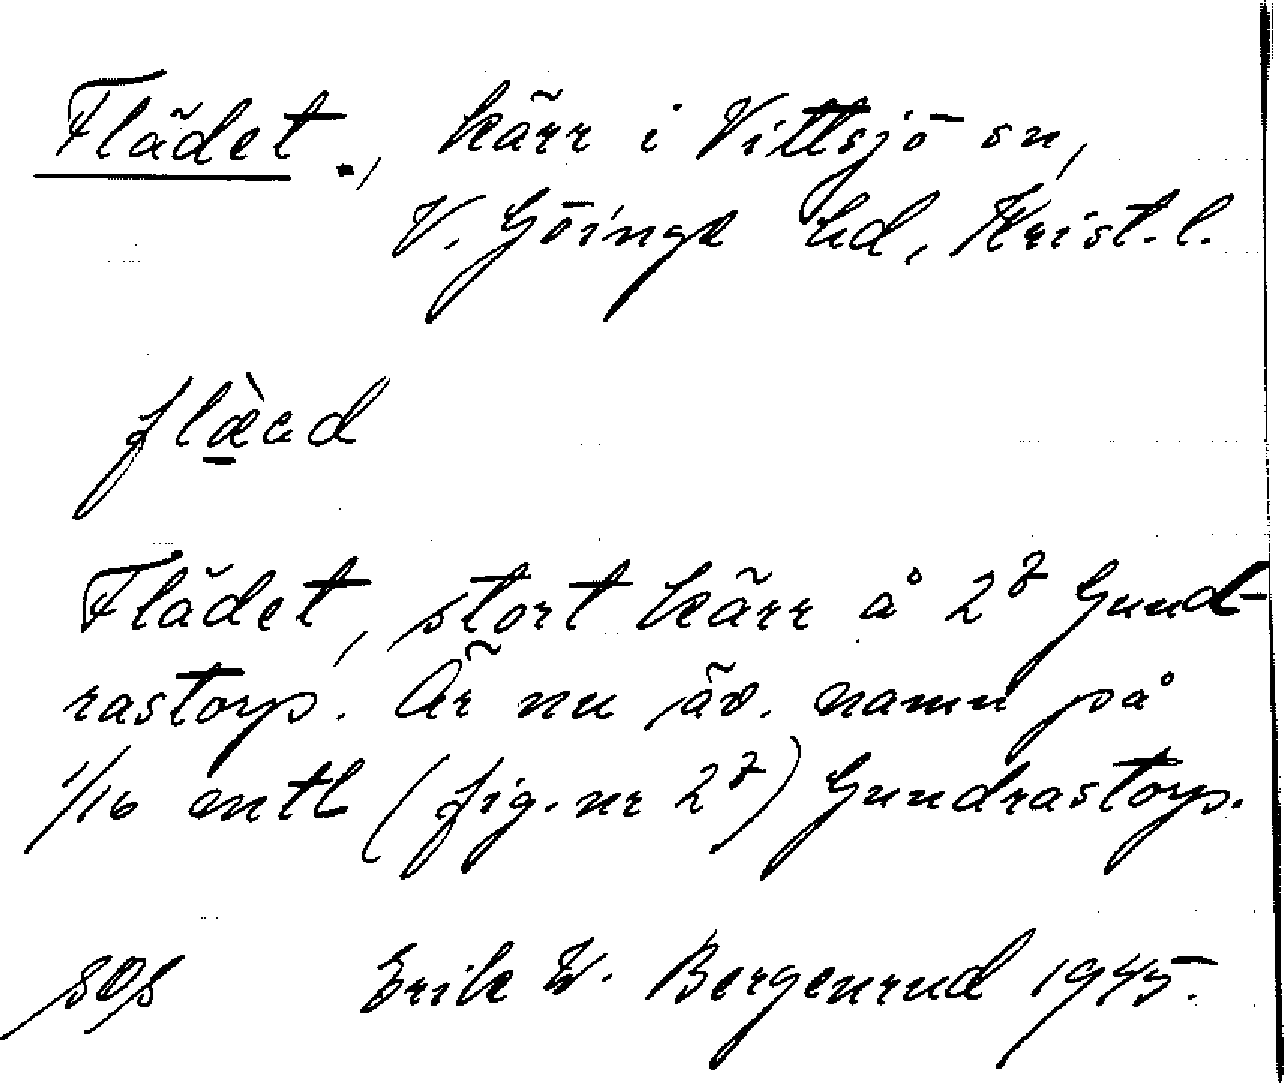 Flädet., kärr i Vittsjö sn,
V. Göinge hd, Krist. l.
flæ̀ad
Flädet, stort kärr å 2⁷ Gund-
rastorp. Är nu äv. namn på
1/16 mtl (fig. nr 2⁷) Gundrastorp.
Erik W. Bergenrud 1945.